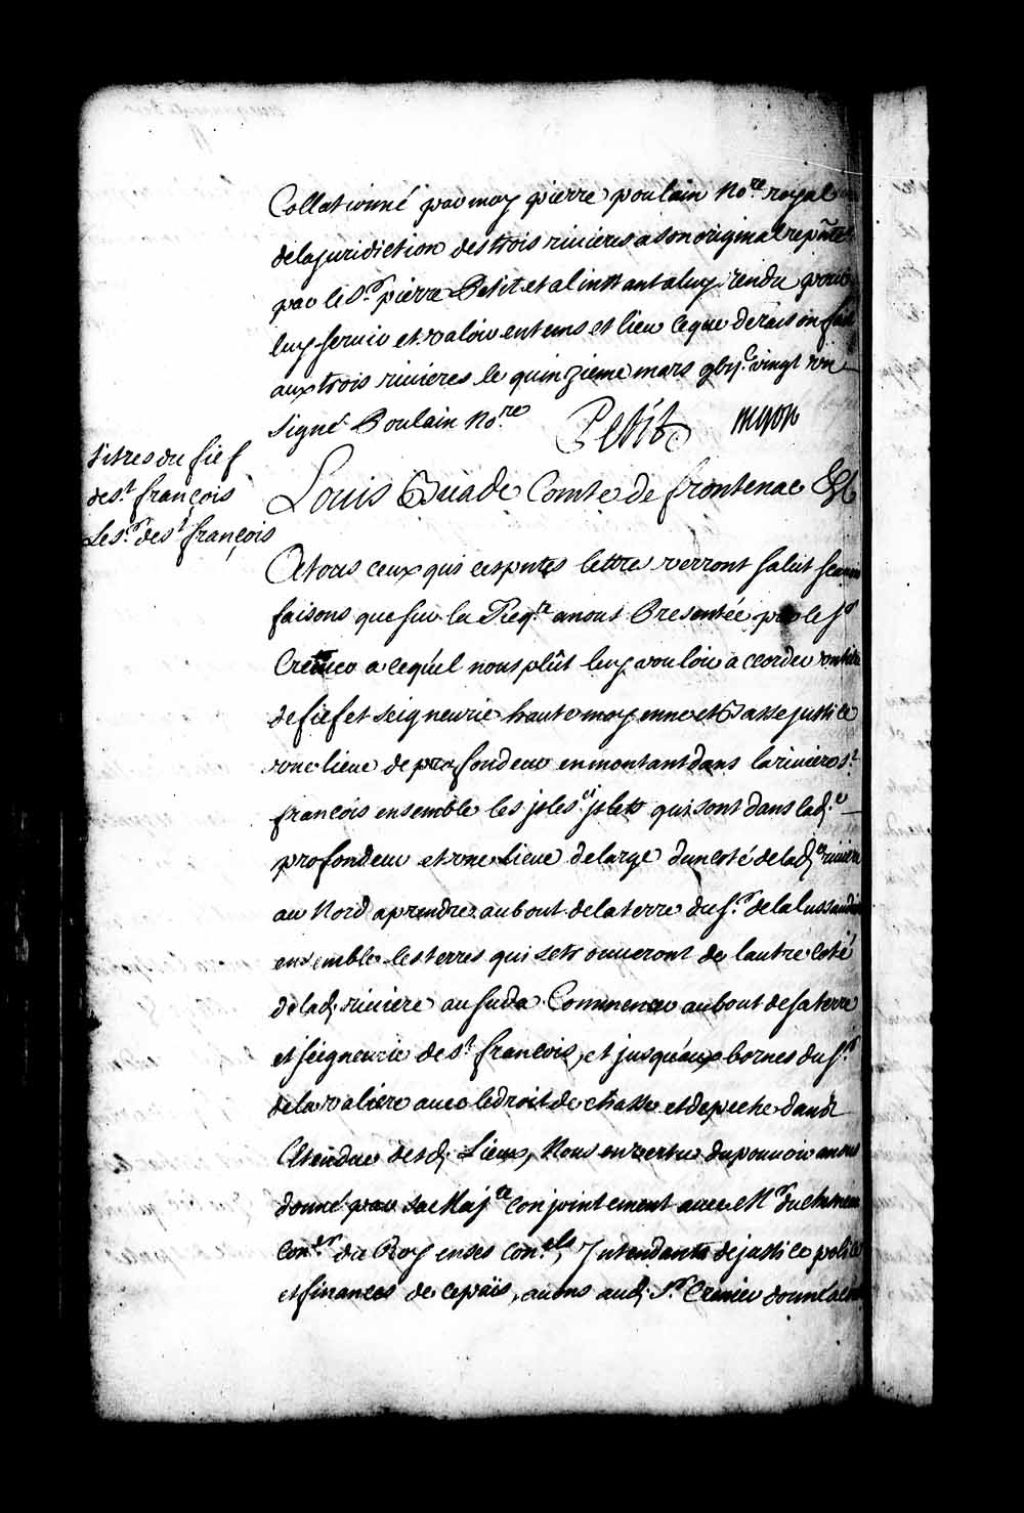 Collationné par moy pierre poulain No.re royal
de la juridiction des trois rivieres a son original repñté
par le S.r pierre Petit et a linstant a luy rendu pour
luy servir et valoir en tems et lieu ce que de raison fait
aux trois rivieres le quinzieme mars gbij.c vingt un
signé Poulain No.re Petit
titres du fief
de s.t françois
Le s.r de s.t françois
Louis Buade Comte de frontenac &c
A tous ceux qui ces pntes lettre verront salut scavoir
faisons que sur la Req.te a nous Presentée par le s.r
Crevier a ce qu'el nous plût luy vouloir accorder en titre
de fief et seigneurie haute moyenne et Basse justice
une lieue de profondeur en montant dans la riviere s.t
françois ensemble les jsles et jslets qui sont dans lad.e
profondeur et une Lieue de large d'un coté de lad.e riviere
au Nord a prendre au bout de la terre du s.r de la lussaudiere
ensemble les terres qui se trouveront de lautre coté
de lad. riviere au sud a Commencer au bout de sa terre
et seigneurie de s.t françois, et jusqu'aux bornes du s.r
de la valiere avec le droit de chasse et de peche dans l
Etendue desd. Lieux, Nous en vertu du pouvoir a nous
donné par sa Maj.té conjointement avec M.r Duchesneau
Con.er du Roy en ses con.els, Jntendant de justice police
et finances de ce païs, avons aud. S.r Crevier donné